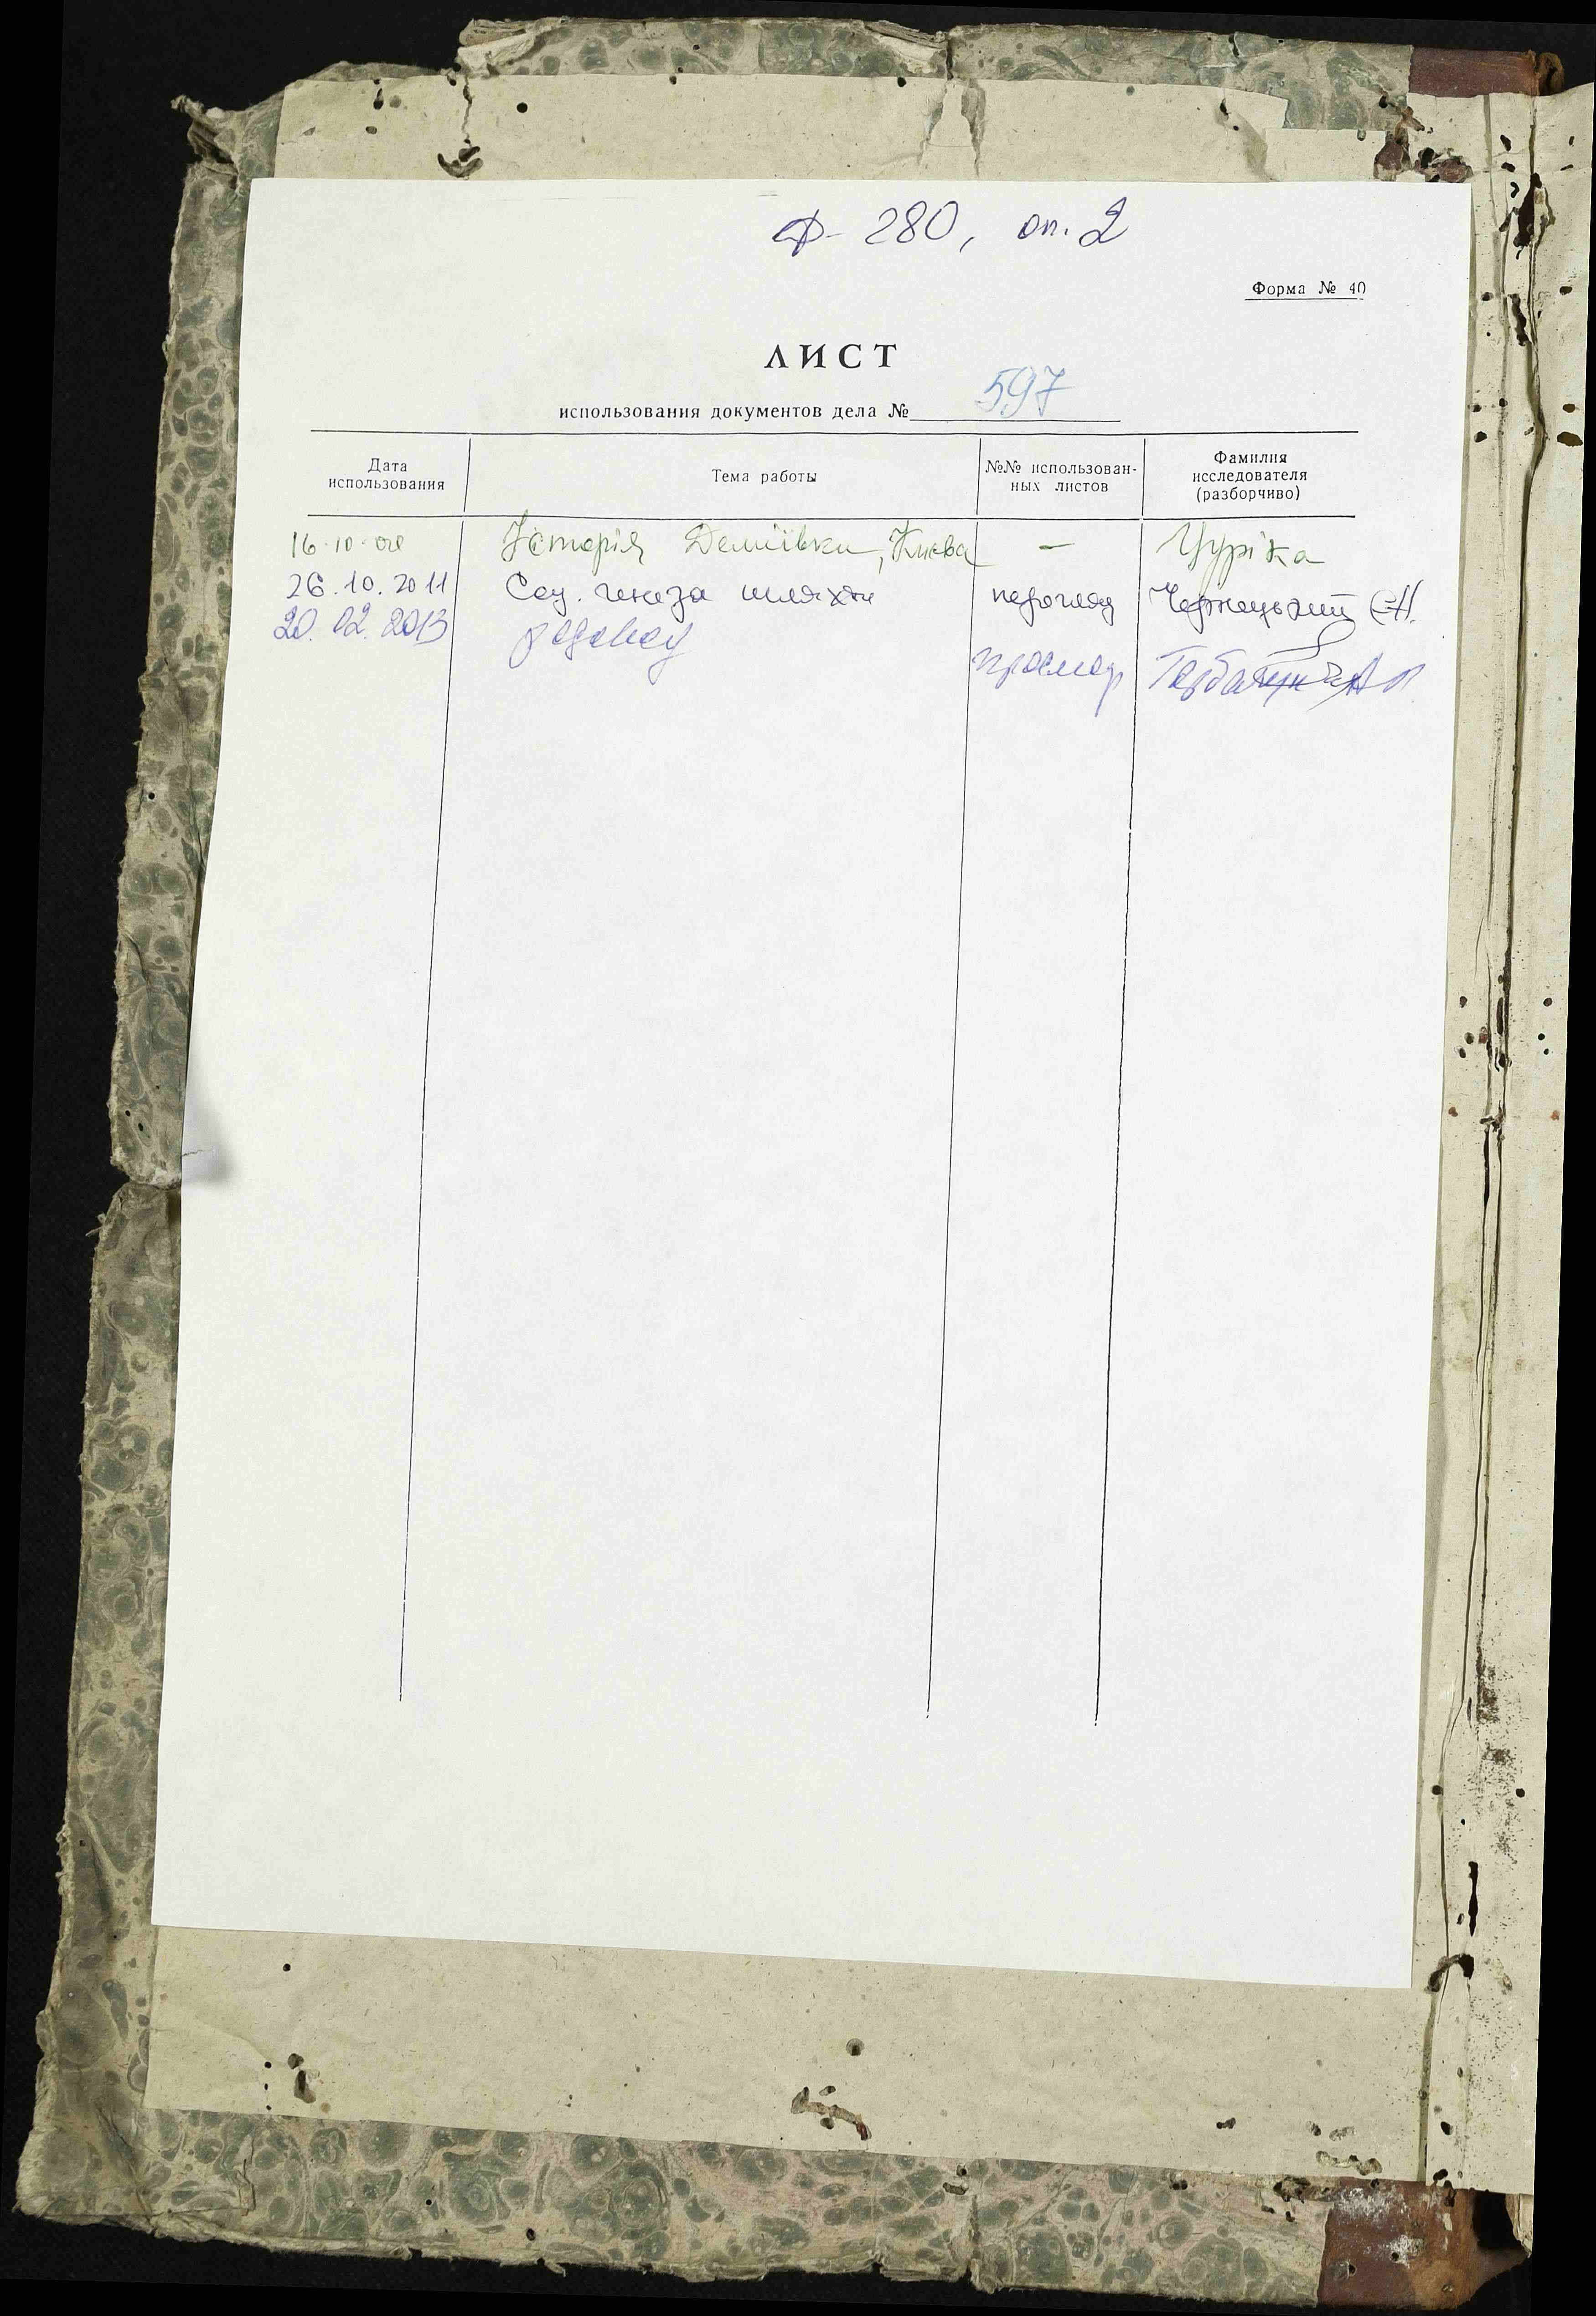 ф- 280, оп. 2
Форма № 40
ЛИСТ
использования документов дела № 597
Дата использования
Тема работы
№№ использован-
ных листов
Фамилия
исследователя
(разборчиво)
16.10.08 Історія Деміївки, Києва — Цуріка
26.10.2011 Соц. генеза шляхти перегляд Чернецький Є.А.
20.02.2013 родовод просмотр